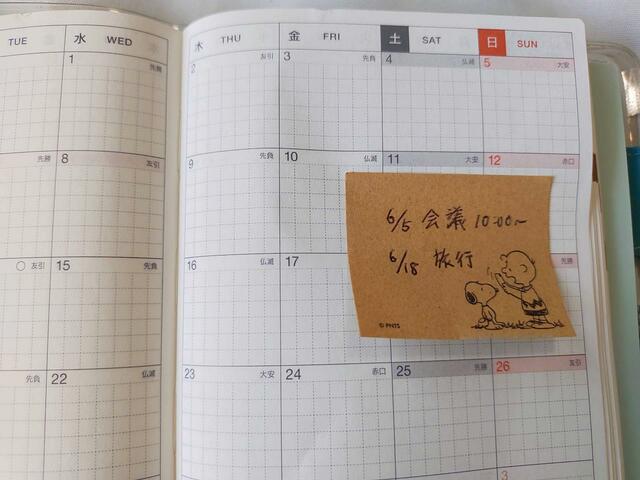 TUE 水 WED 木 THU 金 FRI 土 SAT 日 SUN
1 先勝 2 友引 3 先負 4 仏滅 5 大安
先勝 8 友引 9 先負 10 仏滅 11 大安 12 赤口
6/5 会議 10:00〜
6/18 旅行
© PNTS
友引 15 先負 16 仏滅 17 先勝
先負 22 仏滅 23 大安 24 赤口 25 先勝 26 友引
3